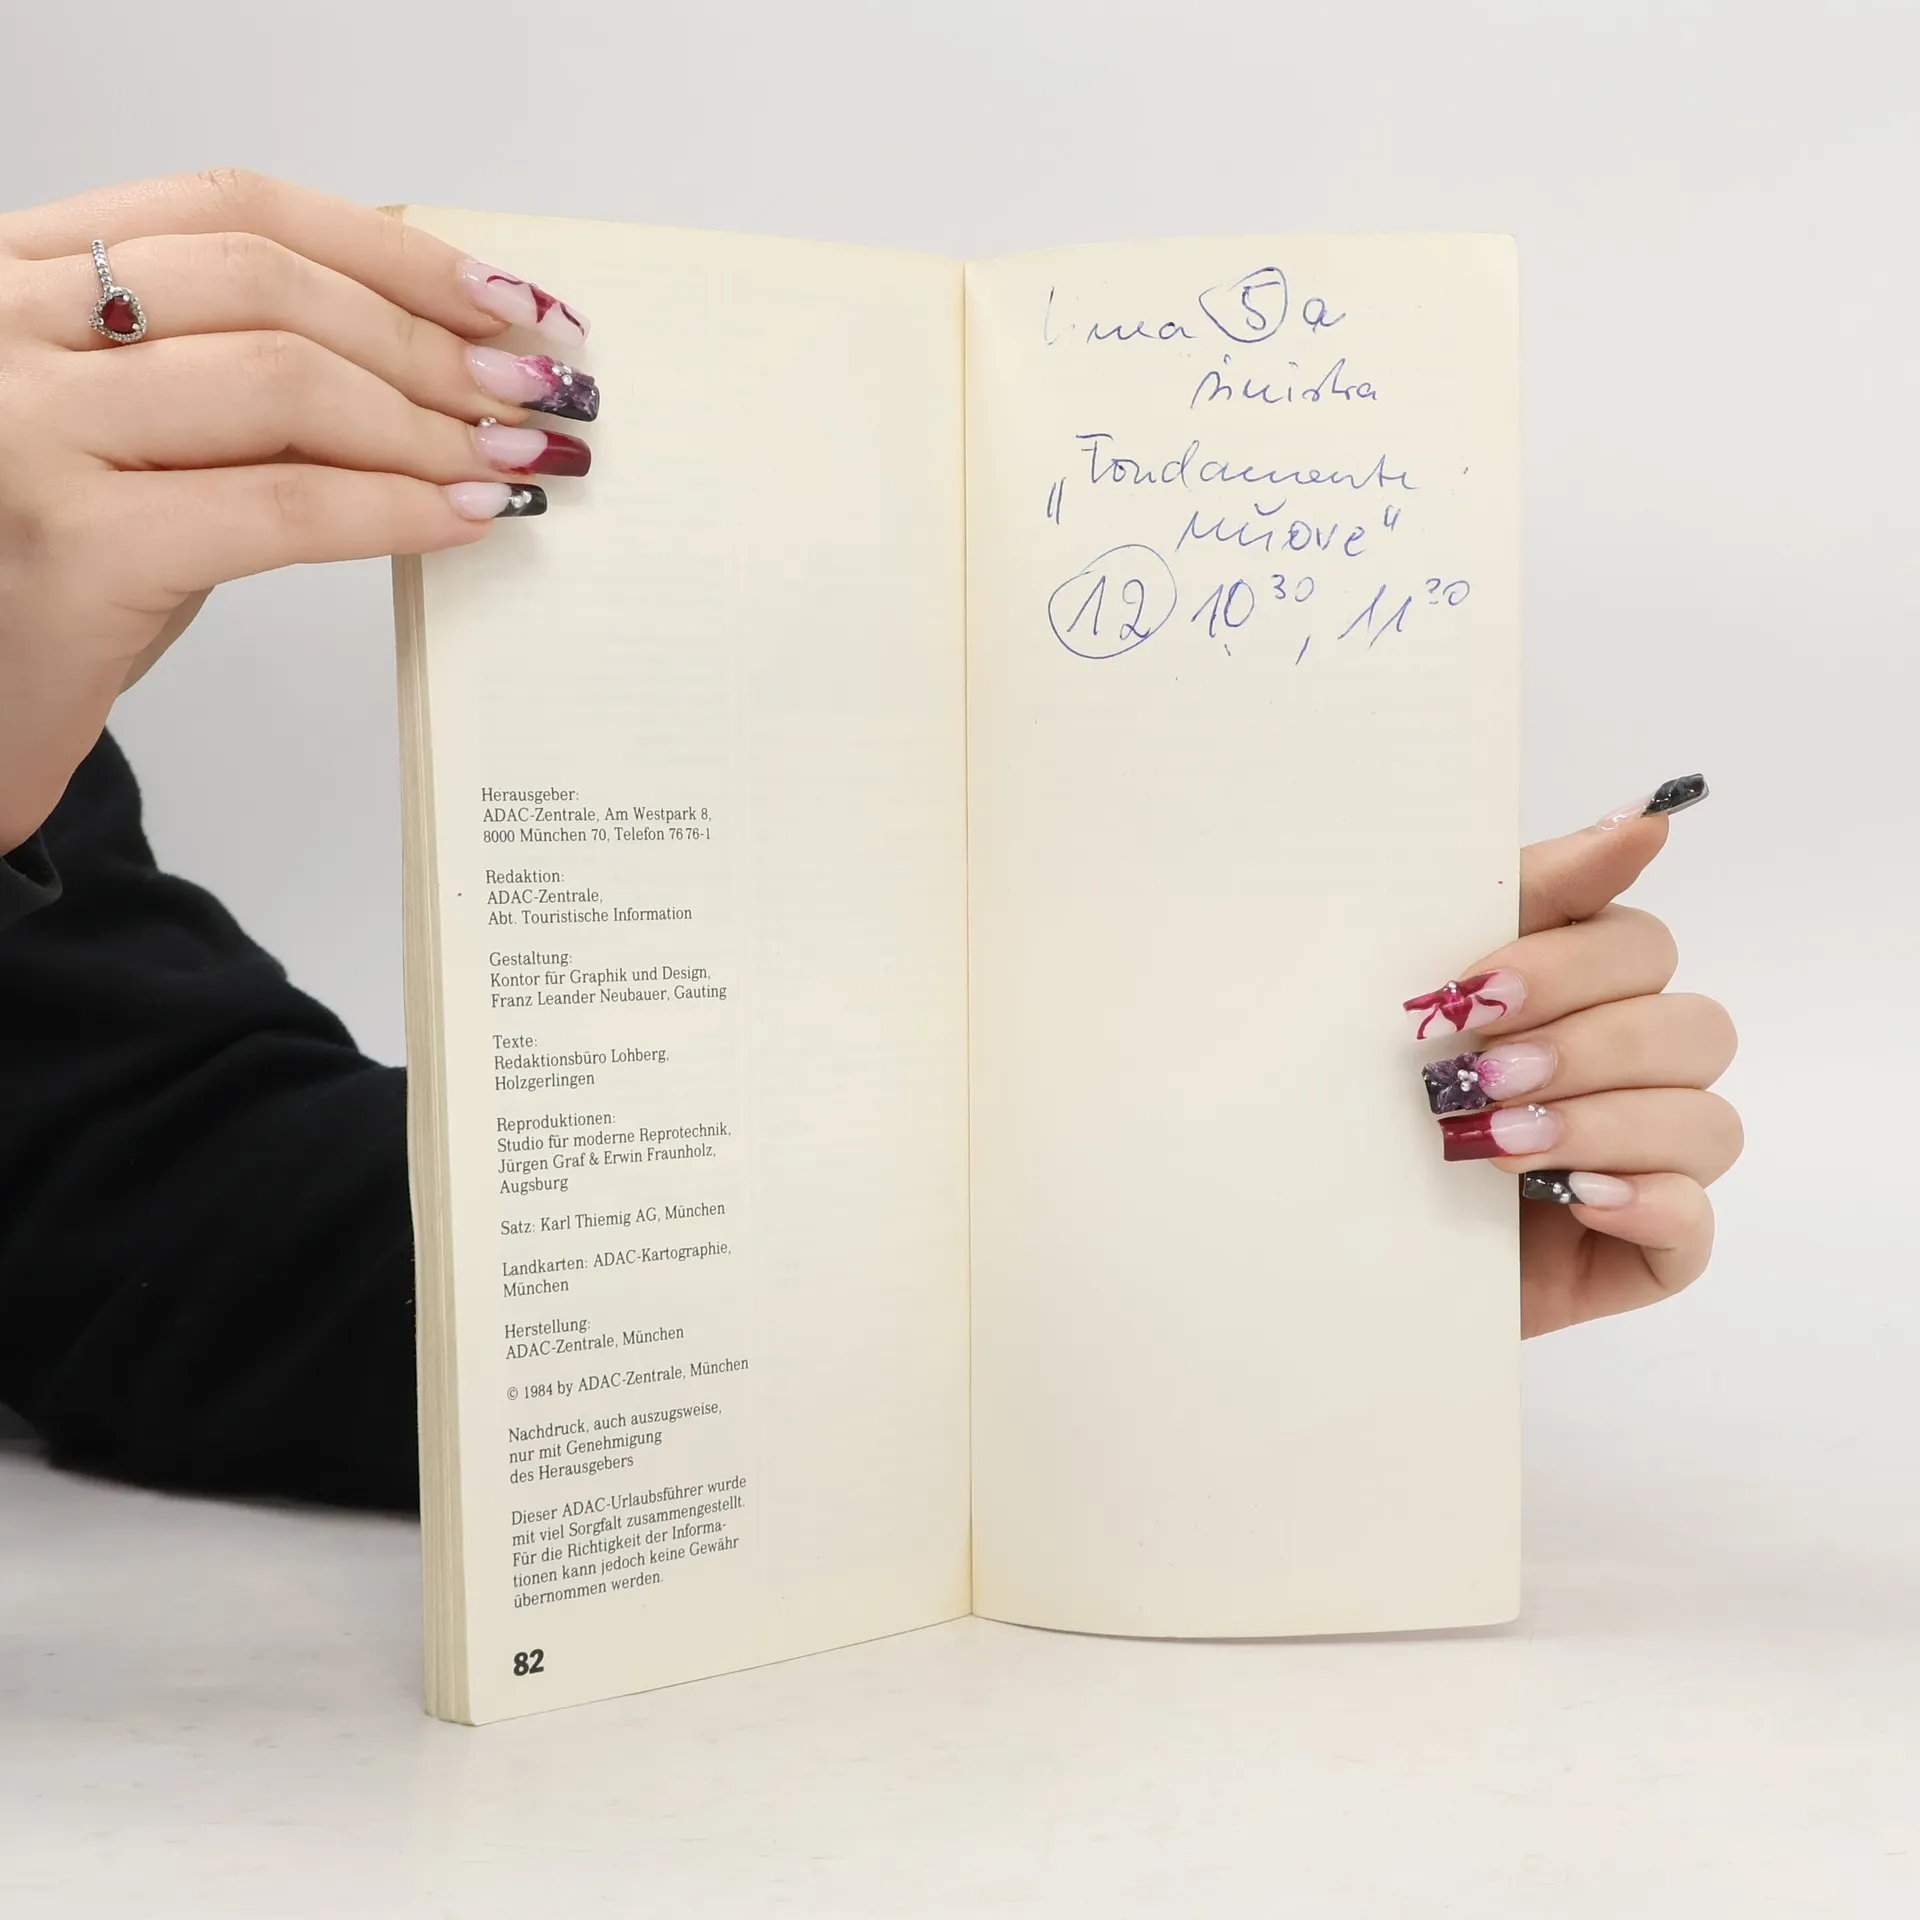 Herausgeber:
ADAC-Zentrale, Am Westpark 8,
8000 München 70, Telefon 76 76-1
Redaktion:
ADAC-Zentrale,
Abt. Touristische Information
Gestaltung:
Kontor für Graphik und Design,
Franz Leander Neubauer, Gauting
Texte:
Redaktionsbüro Lohberg,
Holzgerlingen
Reproduktionen:
Studio für moderne Reprotechnik,
Jürgen Graf & Erwin Fraunholz,
Augsburg
Satz: Karl Thiemig AG, München
Landkarten: ADAC-Kartographie,
München
Herstellung:
ADAC-Zentrale, München
© 1984 by ADAC-Zentrale, München
Nachdruck, auch auszugsweise,
nur mit Genehmigung
des Herausgebers
Dieser ADAC-Urlaubsführer wurde
mit viel Sorgfalt zusammengestellt.
Für die Richtigkeit der Informa-
tionen kann jedoch keine Gewähr
übernommen werden.
82
linea 5 a
sinistra
„Fondamente
nuove“
12 10 30, 11 30